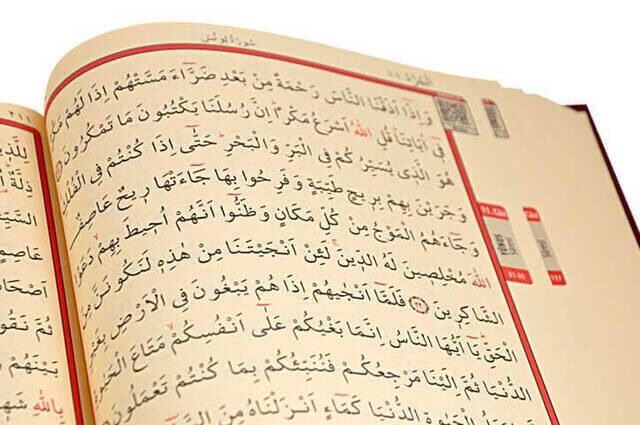 سُورَةُ يُونُسَ
وَاِذَٓا اَذَقْنَا النَّاسَ رَحْمَةً مِنْ بَعْدِ ضَرَّٓاءَ مَسَّتْهُمْ اِذَا لَهُمْ
فٖٓي اٰيَاتِنَا قُلِ اللّٰهُ اَسْرَعُ مَكْرًا اِنَّ رُسُلَنَا يَكْتُبُونَ مَا تَمْكُرُونَ
هُوَ الَّذٖي يُسَيِّرُكُمْ فِي الْبَرِّ وَالْبَحْرِ حَتّٰٓى اِذَا كُنْتُمْ فِي الْفُلْكِ
وَجَرَيْنَ بِهِمْ بِرٖيحٍ طَيِّبَةٍ وَفَرِحُوا بِهَا جَٓاءَتْهَا رٖيحٌ عَاصِفٌ
وَجَٓاءَهُمُ الْمَوْجُ مِنْ كُلِّ مَكَانٍ وَظَنُّٓوا اَنَّهُمْ اُحٖيطَ بِهِمْ دَعَوُا
اللّٰهَ مُخْلِصٖينَ لَهُ الدّٖينَ لَئِنْ اَنْجَيْتَنَا مِنْ هٰذِهٖ لَنَكُونَنَّ مِنَ
الشَّاكِرٖينَ ۝ فَلَمَّٓا اَنْجٰيهُمْ اِذَا هُمْ يَبْغُونَ فِي الْاَرْضِ بِغَيْرِ
الْحَقِّ يَٓا اَيُّهَا النَّاسُ اِنَّمَا بَغْيُكُمْ عَلٰٓى اَنْفُسِكُمْ مَتَاعَ الْحَيٰوةِ
الدُّنْيَا ثُمَّ اِلَيْنَا مَرْجِعُكُمْ فَنُنَبِّئُكُمْ بِمَا كُنْتُمْ تَعْمَلُونَ
الْحَيٰوةِ الدُّنْيَا كَمَٓاءٍ اَنْزَلْنَاهُ مِنَ
YUNUS
21-25
٢١١
لِلَّذٖينَ
ذِلَّةٌ
عَاصِمٍ
اَصْحَابُ
ثُمَّ نَقُو
بَيْنَهُمْ
بِاللّٰهِ شَهٖي